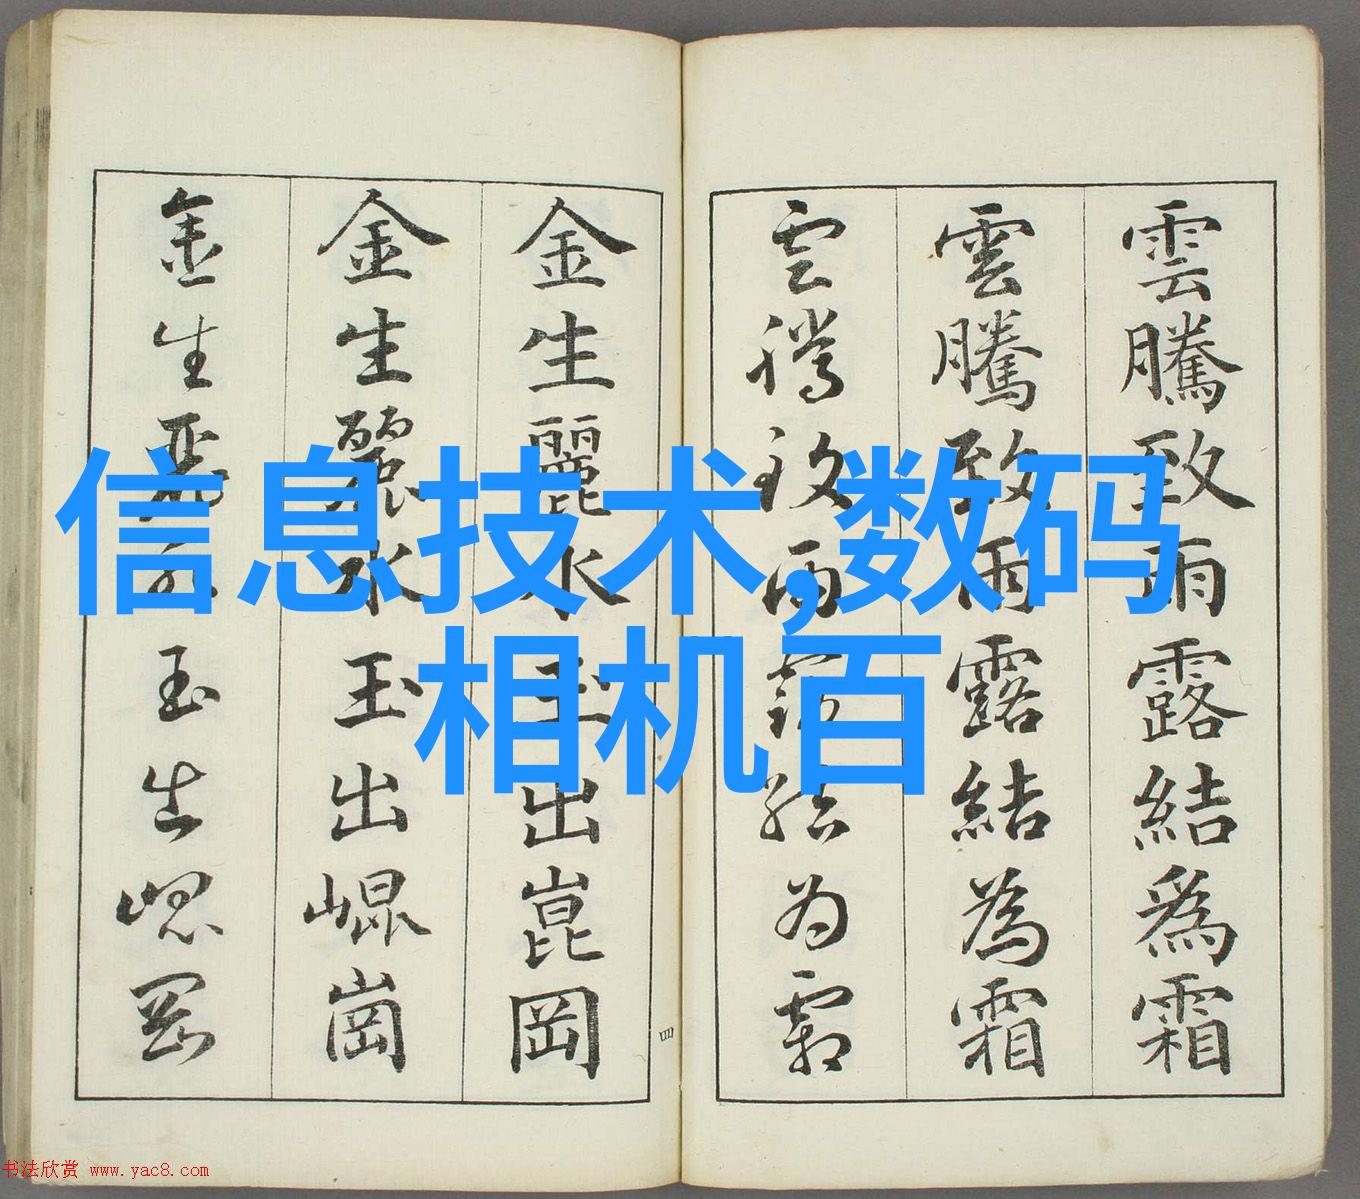 雲騰致雨露結爲霜
雲騰致雨露結為霜
雲騰致雨露結为霜
金生麗水玉出崑岡
金生麗水玉出崐崗
金生麗水玉出崐岡
四
信息技术,数码
相机百
书法欣赏 www.yac8.com